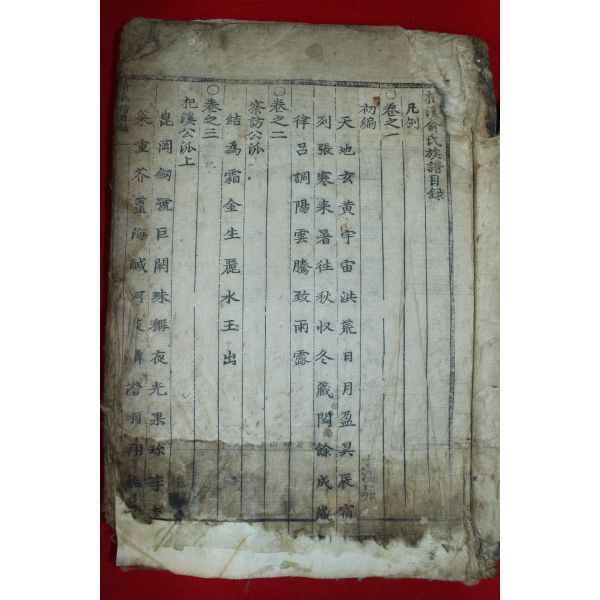 杞溪俞氏族譜目錄
凡例
○卷之一
初編
天地玄黃宇宙洪荒日月盈昃辰宿
列張寒来暑往秋収冬藏閏餘成歲
律呂調陽雲騰致雨露
○卷之二
察訪公派
結為霜金生麗水玉出
○卷之三
杞溪公派上
崑岡劒號巨闕珠稱夜光果珍李柰
菜重芥薑海醎河淡鱗潛羽翔龍
譜目錄